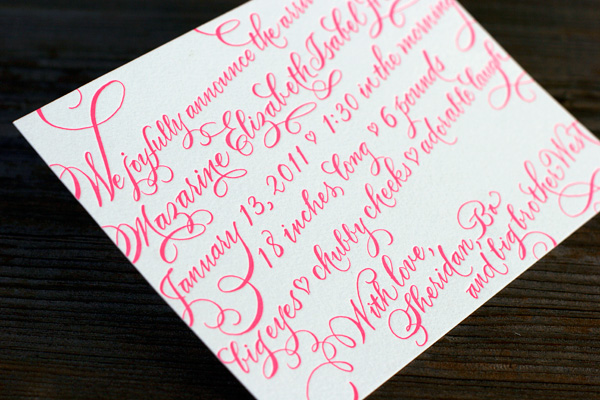 We joyfully announce the
Mazarine Elizabeth Isabel
January 13, 2011 ♡ 1:30 in the morning
18 inches, long ♥ 6 pounds
big eyes ♡ chubby cheeks ♥ adorable laugh
With love,
Sheridan, Bo
and big brother West